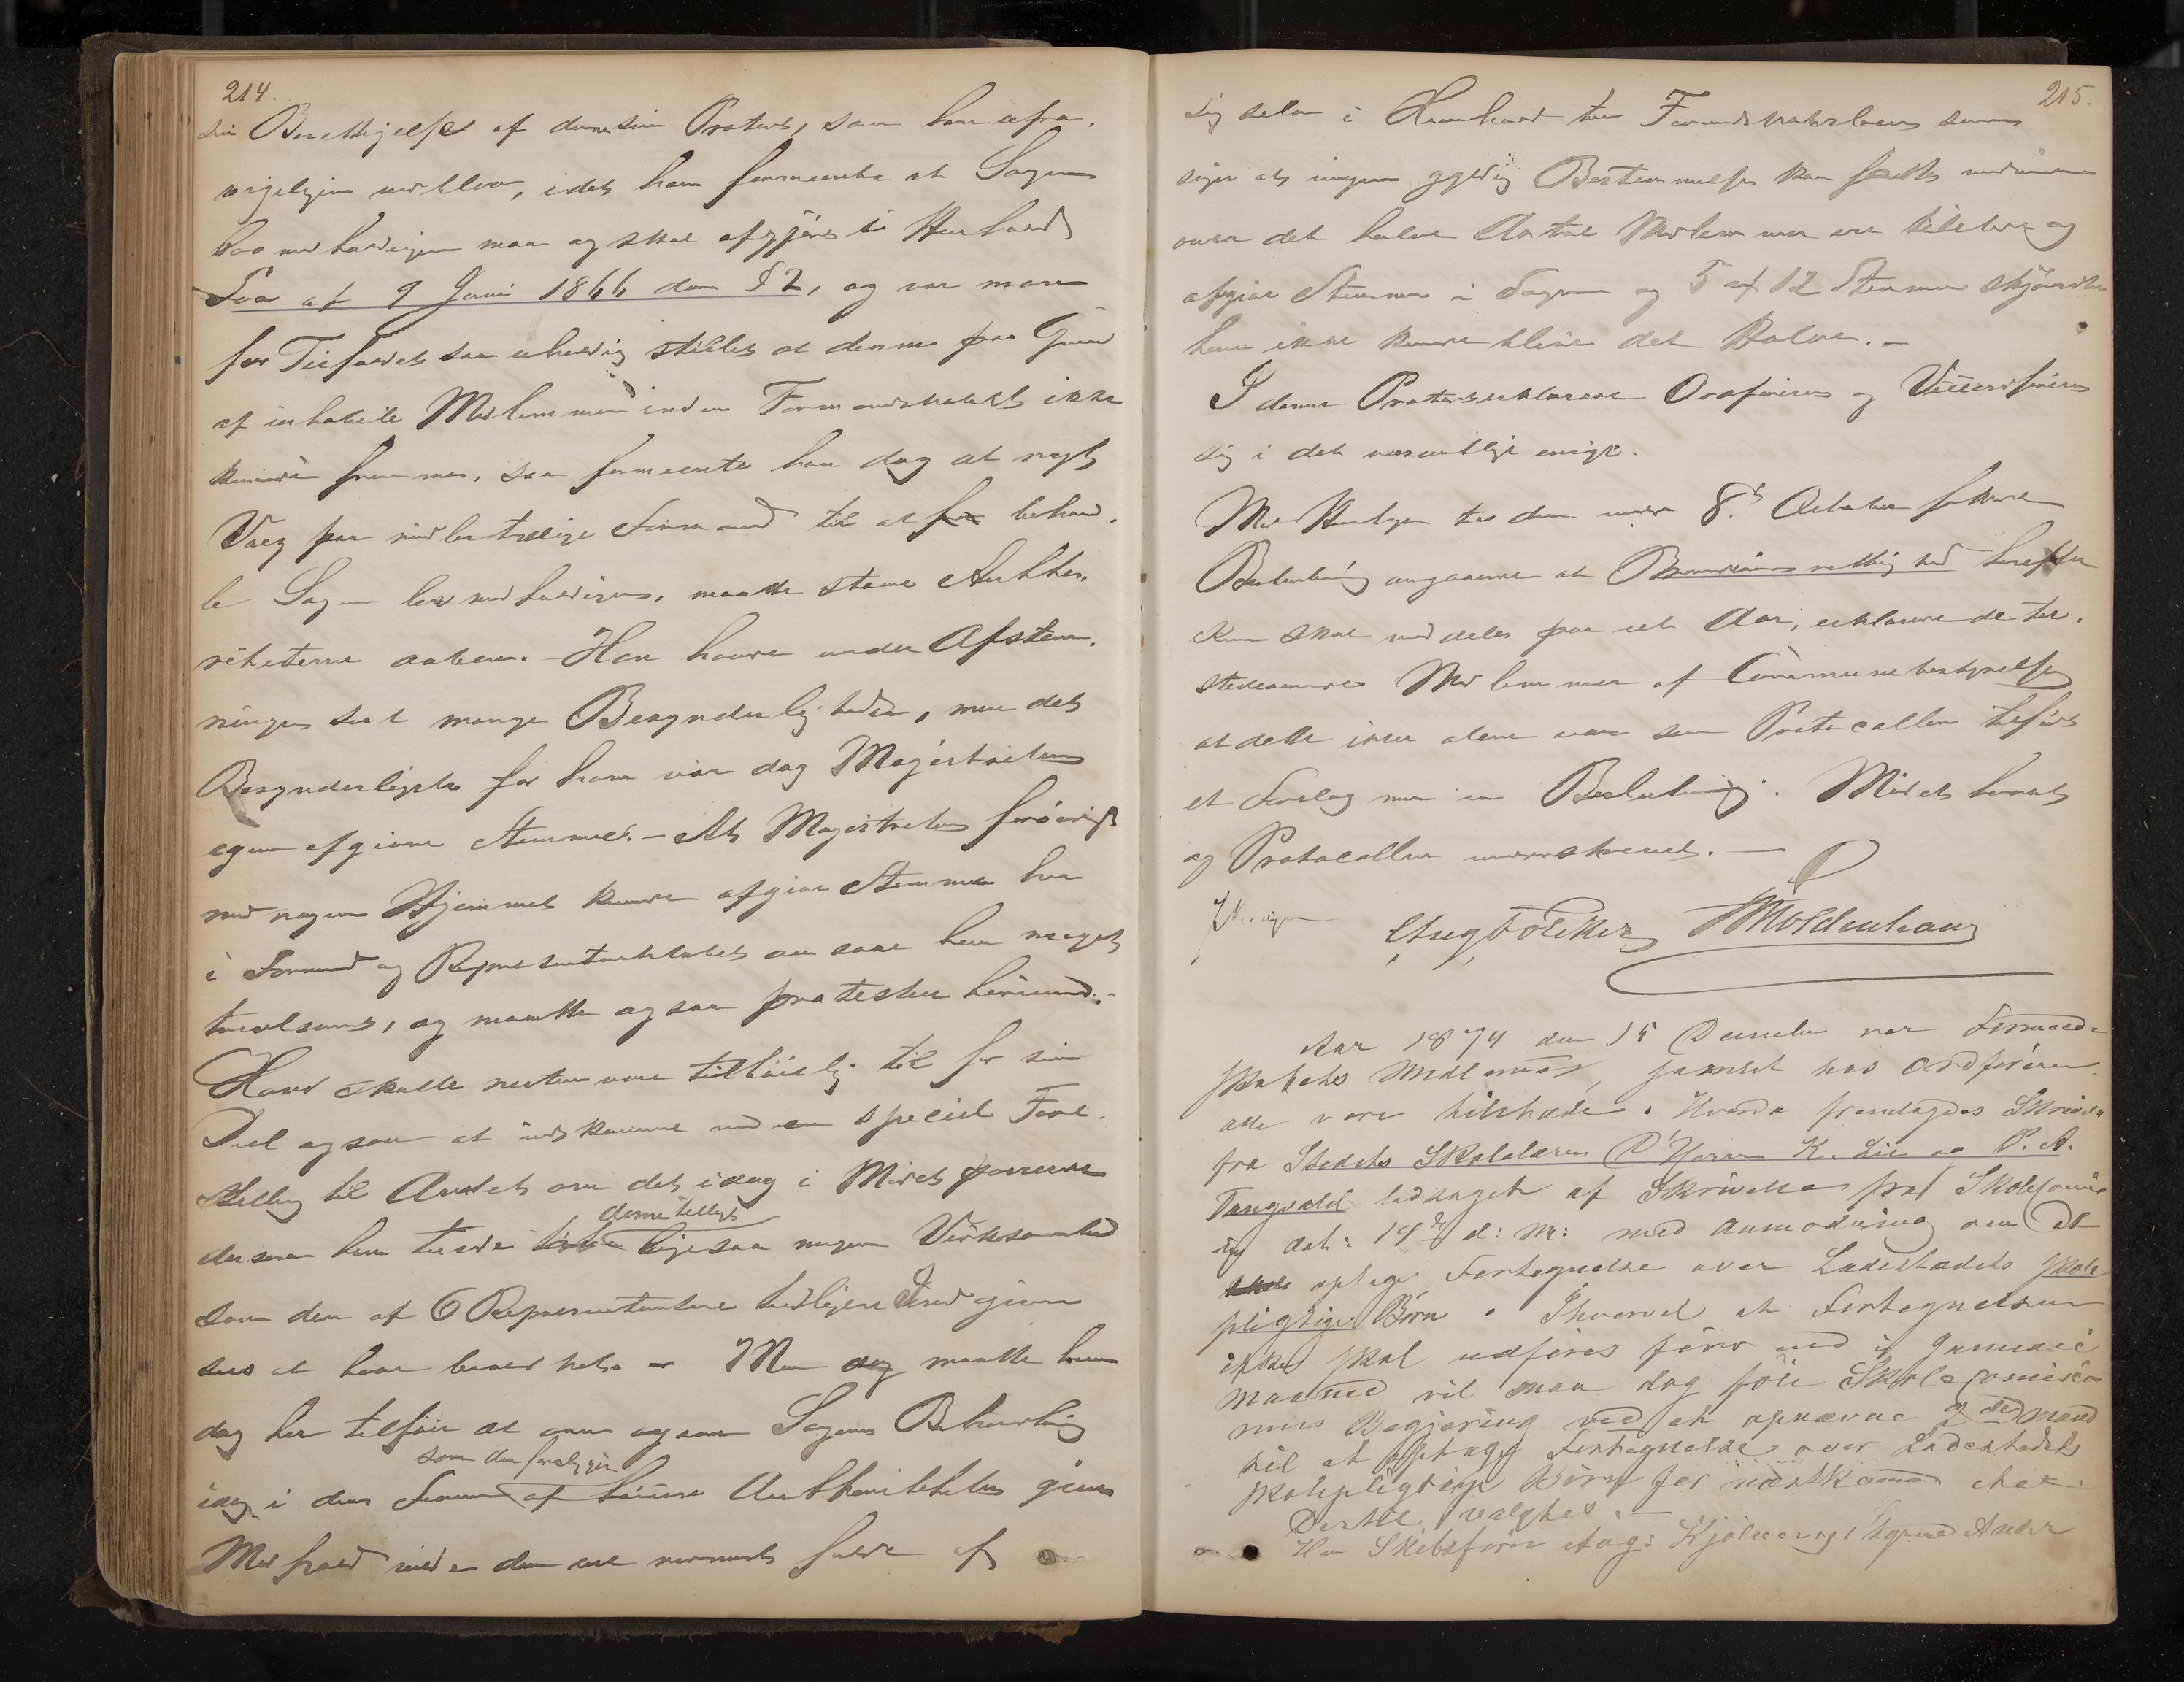 214.
sin Berettigelse af denne sin Protest, som han ufra-
vigeligen vedblev, idet han formeente at Sagen
Lov medholdigen maa og skal afgjøres i Henhold
Lov af 9 Juni 1866 dens § 2, og var man
for Tilfældet saa uheldig stillet at denne paa Grund
af inhabile Medlemmer inden Formandskabet ikke
kunde fremmes, saa formeente han dog at nogle
Valg paa midlertidige Formænd til at behand-
le Sagen lovmedholdigen, maatte staae Autho-
riteterne aaben. - Han havde under Afstem-
ningen seet mange Besynderligheder, men det
Besynderligste for ham var dog Magistratens
egen afgivne Stemme. - At Magistraten forøvrigt
med nogen Hjemmel kunde afgive Stemme her
i Formand og Repræsentantskabet ansaae han meget
tvivlsomt, og maatte ogsaa protestere herimod. -
Havd skulde næsten være tilbøielig til for sin
Deel ogsaa at udkomme med en speciel Fore-
stilling til Amtet om det idag i Mødet passerede
dersom han turde denne tillægge ligesaa megen Virksomhed
som den af 6 Repræsentantere tidligere Indgivne
sees at have bevirket. - Men maatte han
dog her tilføie at om ogsaa Sagens Behandling
idag i den Form som den foreligger af høiere Authoriteter gives
Medhold vilde den ved nærmest Fulde af
215.
sig selv i Henhold til Formandskabsloven som
siger at ingen gyldig Bestemmelse kan fattes medmindre
over det halve Antal Medlemmer ere tilstede og
afgive Stemme i Sagen og 5 af 12 Stemmer skjønte
han ikke kunde blive det Halve. -
I denne Protest erklærede Ordføreren og Viceordføreren
sig i det væsentlige enige.
Med Hensyn til den under 8de October fattede
Beslutning angaaende at Brændeviinsrettighed herefter
kun skal meddeles paa et Aar, erklærede de til-
stedeværende Medlemmer af Communebestyrelsen
at dette ikke alene var som Protocollen tilførte
et Forslag men en Beslutning. Mødet hævet
og Protocollen underskrevet. -
Aug Fölcker Moldenhauer
Aar 1874 den 15 December var Formand-
skabets Medlemmer, samlet hos Ordføreren
alle vare tilstæde. Hvorda fremlagdes Skrivelse
fra Stedets Skolelærere D'Herrer K. Lie og P. A.
Tangvald ledsaget af Skrivelse fra Skolecomis-
sion dat: 14de d: M: med Anmodning om at
optage Fortegnelse over Ladestædets skole-
pligtige Børn. Ihvorvel at Fortegnelsen
ikke skal udføres førend i Januari
Maaned vil man dog føie Skolecomissio-
nens Begjæring ved at opnævne 2de Mænd
til at optage Fortegnelse over Ladestedets
skolepligtige Børn for næstkomende Aar.
Dertil valgtes. -
Hr Skibsfører Aug: Kjølner og Agent Ander